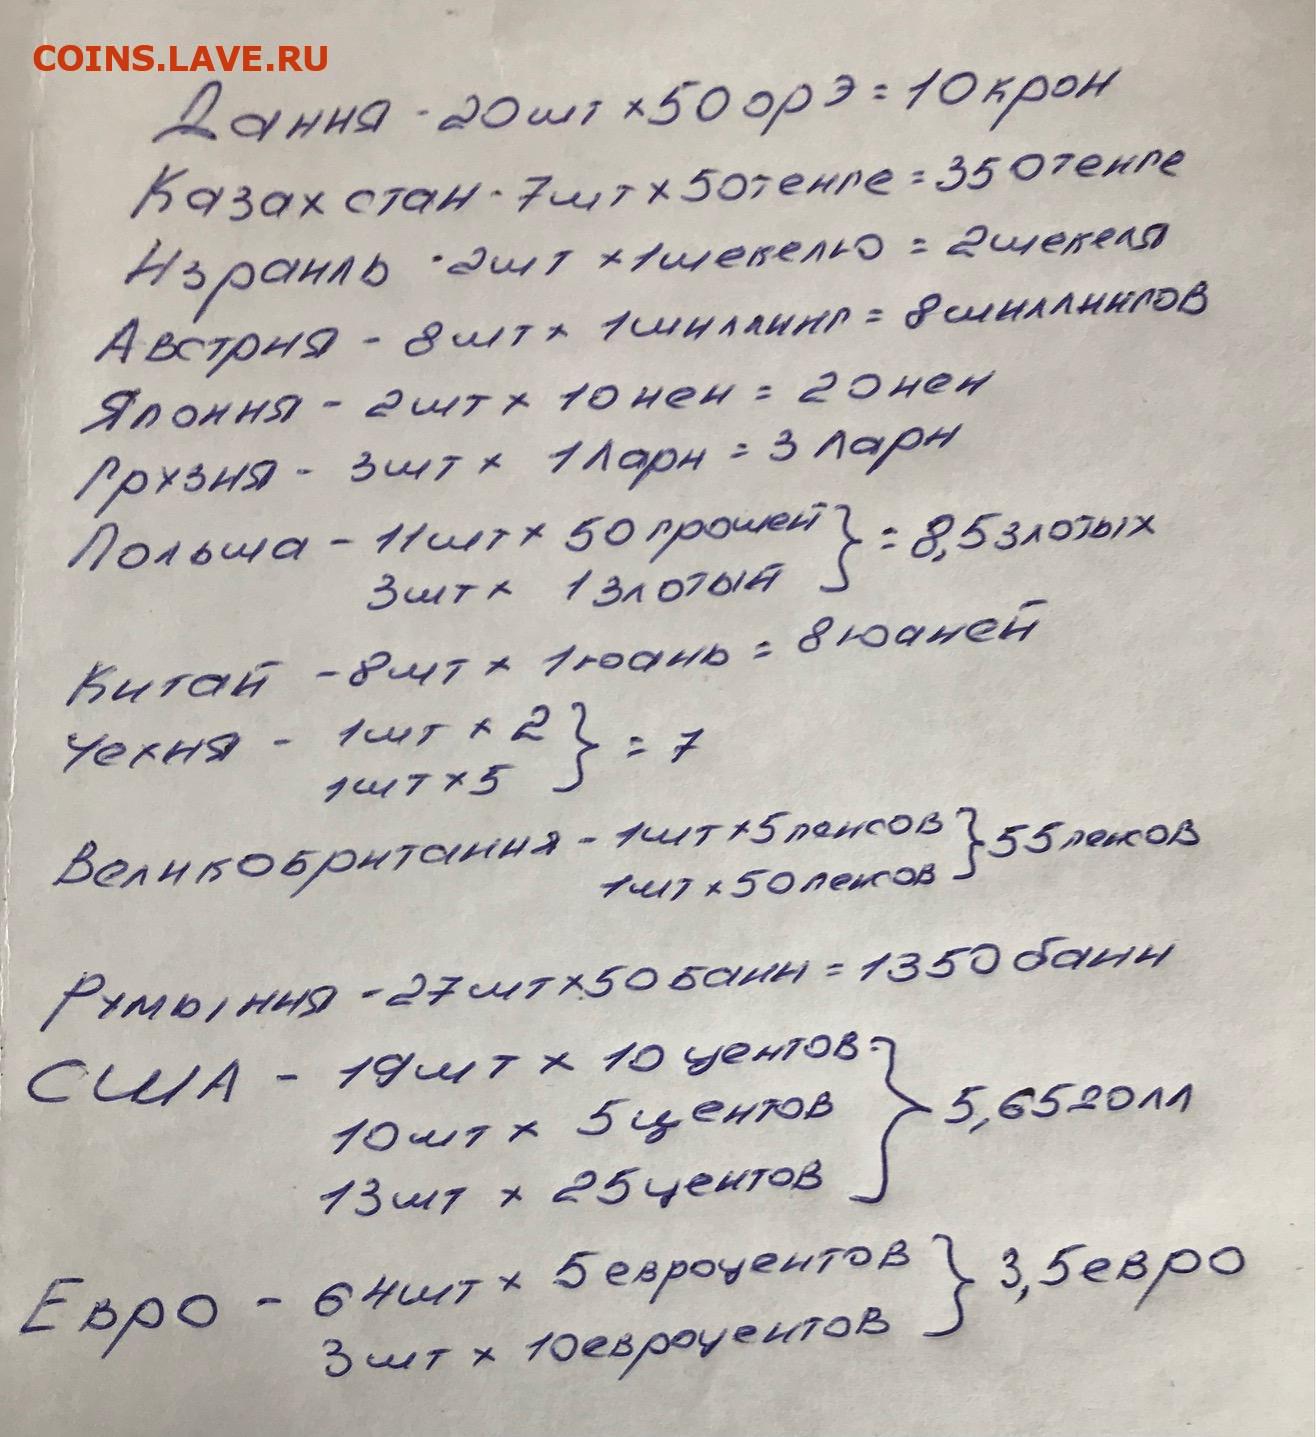 COINS.LAVE.RU
Дания - 20шт х 50 орэ = 10 крон
Казахстан - 7шт х 50тенге = 350тенге
Израиль - 2шт х 1шекелю = 2шекеля
Австрия - 8шт х 1шиллинг = 8шиллингов
Япония - 2шт х 10 иен = 20 иен
Грузия - 3шт х 1 Лари = 3 Лари
Польша - 11шт х 50 грошей } = 8,5 злотых
3шт х 1 злотый
Китай - 8шт х 1юань = 8 юаней
Чехия - 1шт х 2 } = 7
1шт х 5
Великобритания - 1шт х 5пенсов } 55пенсов
1шт х 50пенсов
Румыния - 27шт х 50 бани = 1350 бани
США - 19шт х 10 центов } 5,65 долл
10шт х 5 центов
13шт х 25 центов
Евро - 64шт х 5 евроцентов } 3,5 евро
3шт х 10евроцентов